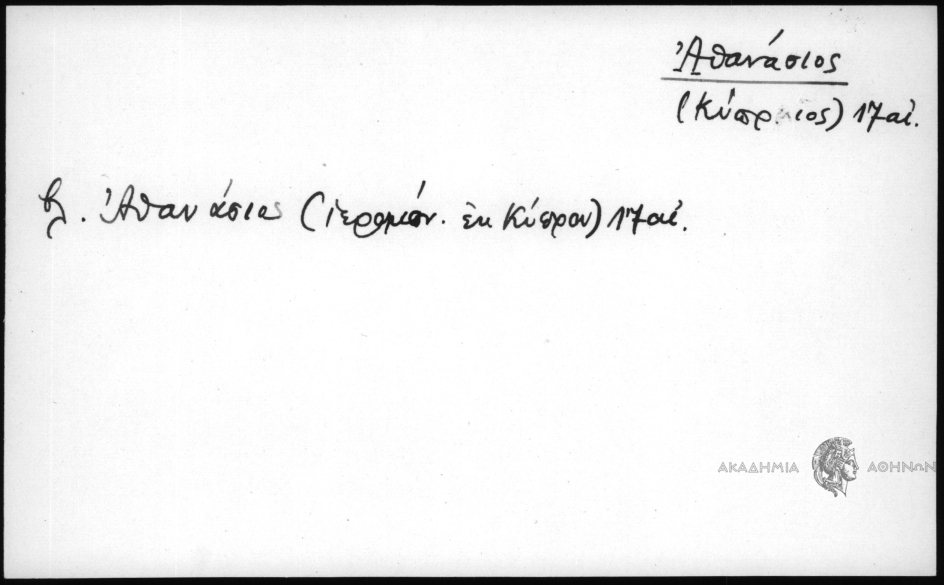 Ἀθανάσιος
(Κύπριος) 17 αἰ.
βλ. Ἀθανάσιος (ἱερομόν. ἐκ Κύπρου) 17 αἰ.
ΑΚΑΔΗΜΙΑ ΑΘΗΝΩΝ